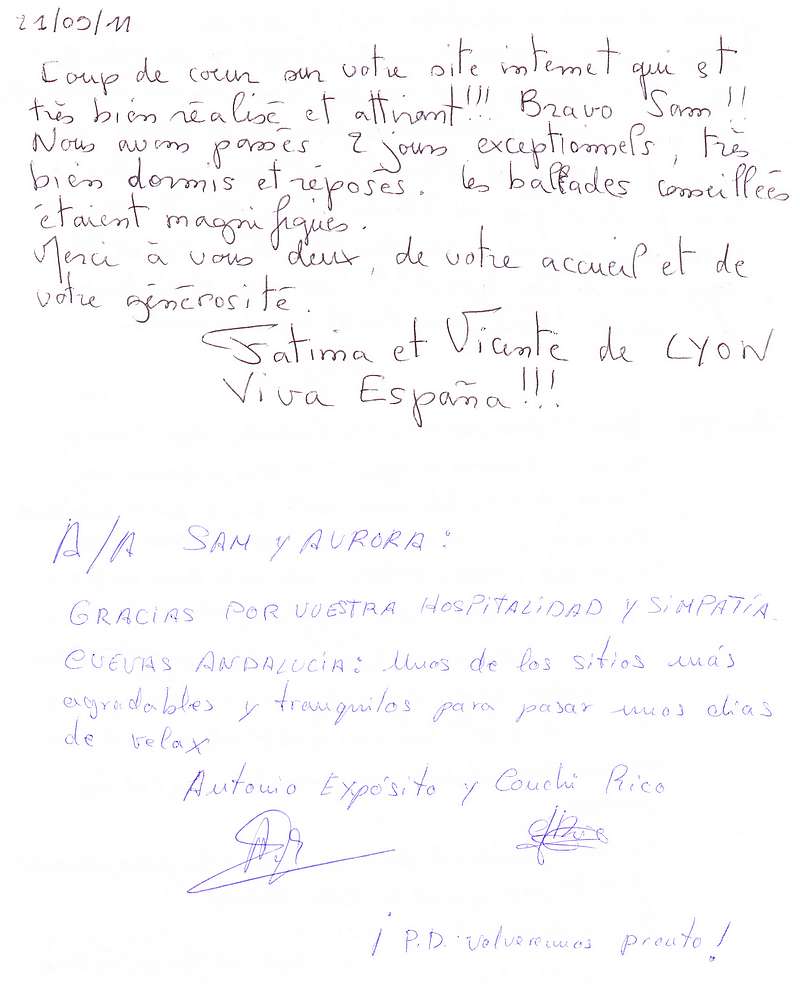 21/09/11
Coup de cœur sur votre site internet qui est
très bien réalisé et attirant!!! Bravo Sam!!
Nous avons passés 2 jours exceptionnels, très
bien dormis et réposés. Les ballades conseillées
étaient magnifiques.
Merci à vous deux, de votre accueil et de
votre générosité.
Fatima et Vicente de LYON
Viva España!!!
A/A SAM y AURORA:
GRACIAS POR VUESTRA HOSPITALIDAD y SIMPATÍA.
CUEVAS ANDALUCÍA: Unos de los sitios más
agradables y tranquilos para pasar unos dias
de relax
Antonio Expósito y Conchi Rico
¡P.D. volveremos pronto!